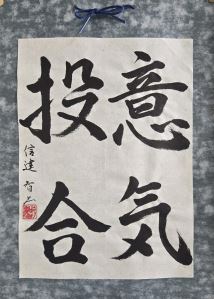 意気
投合
信達